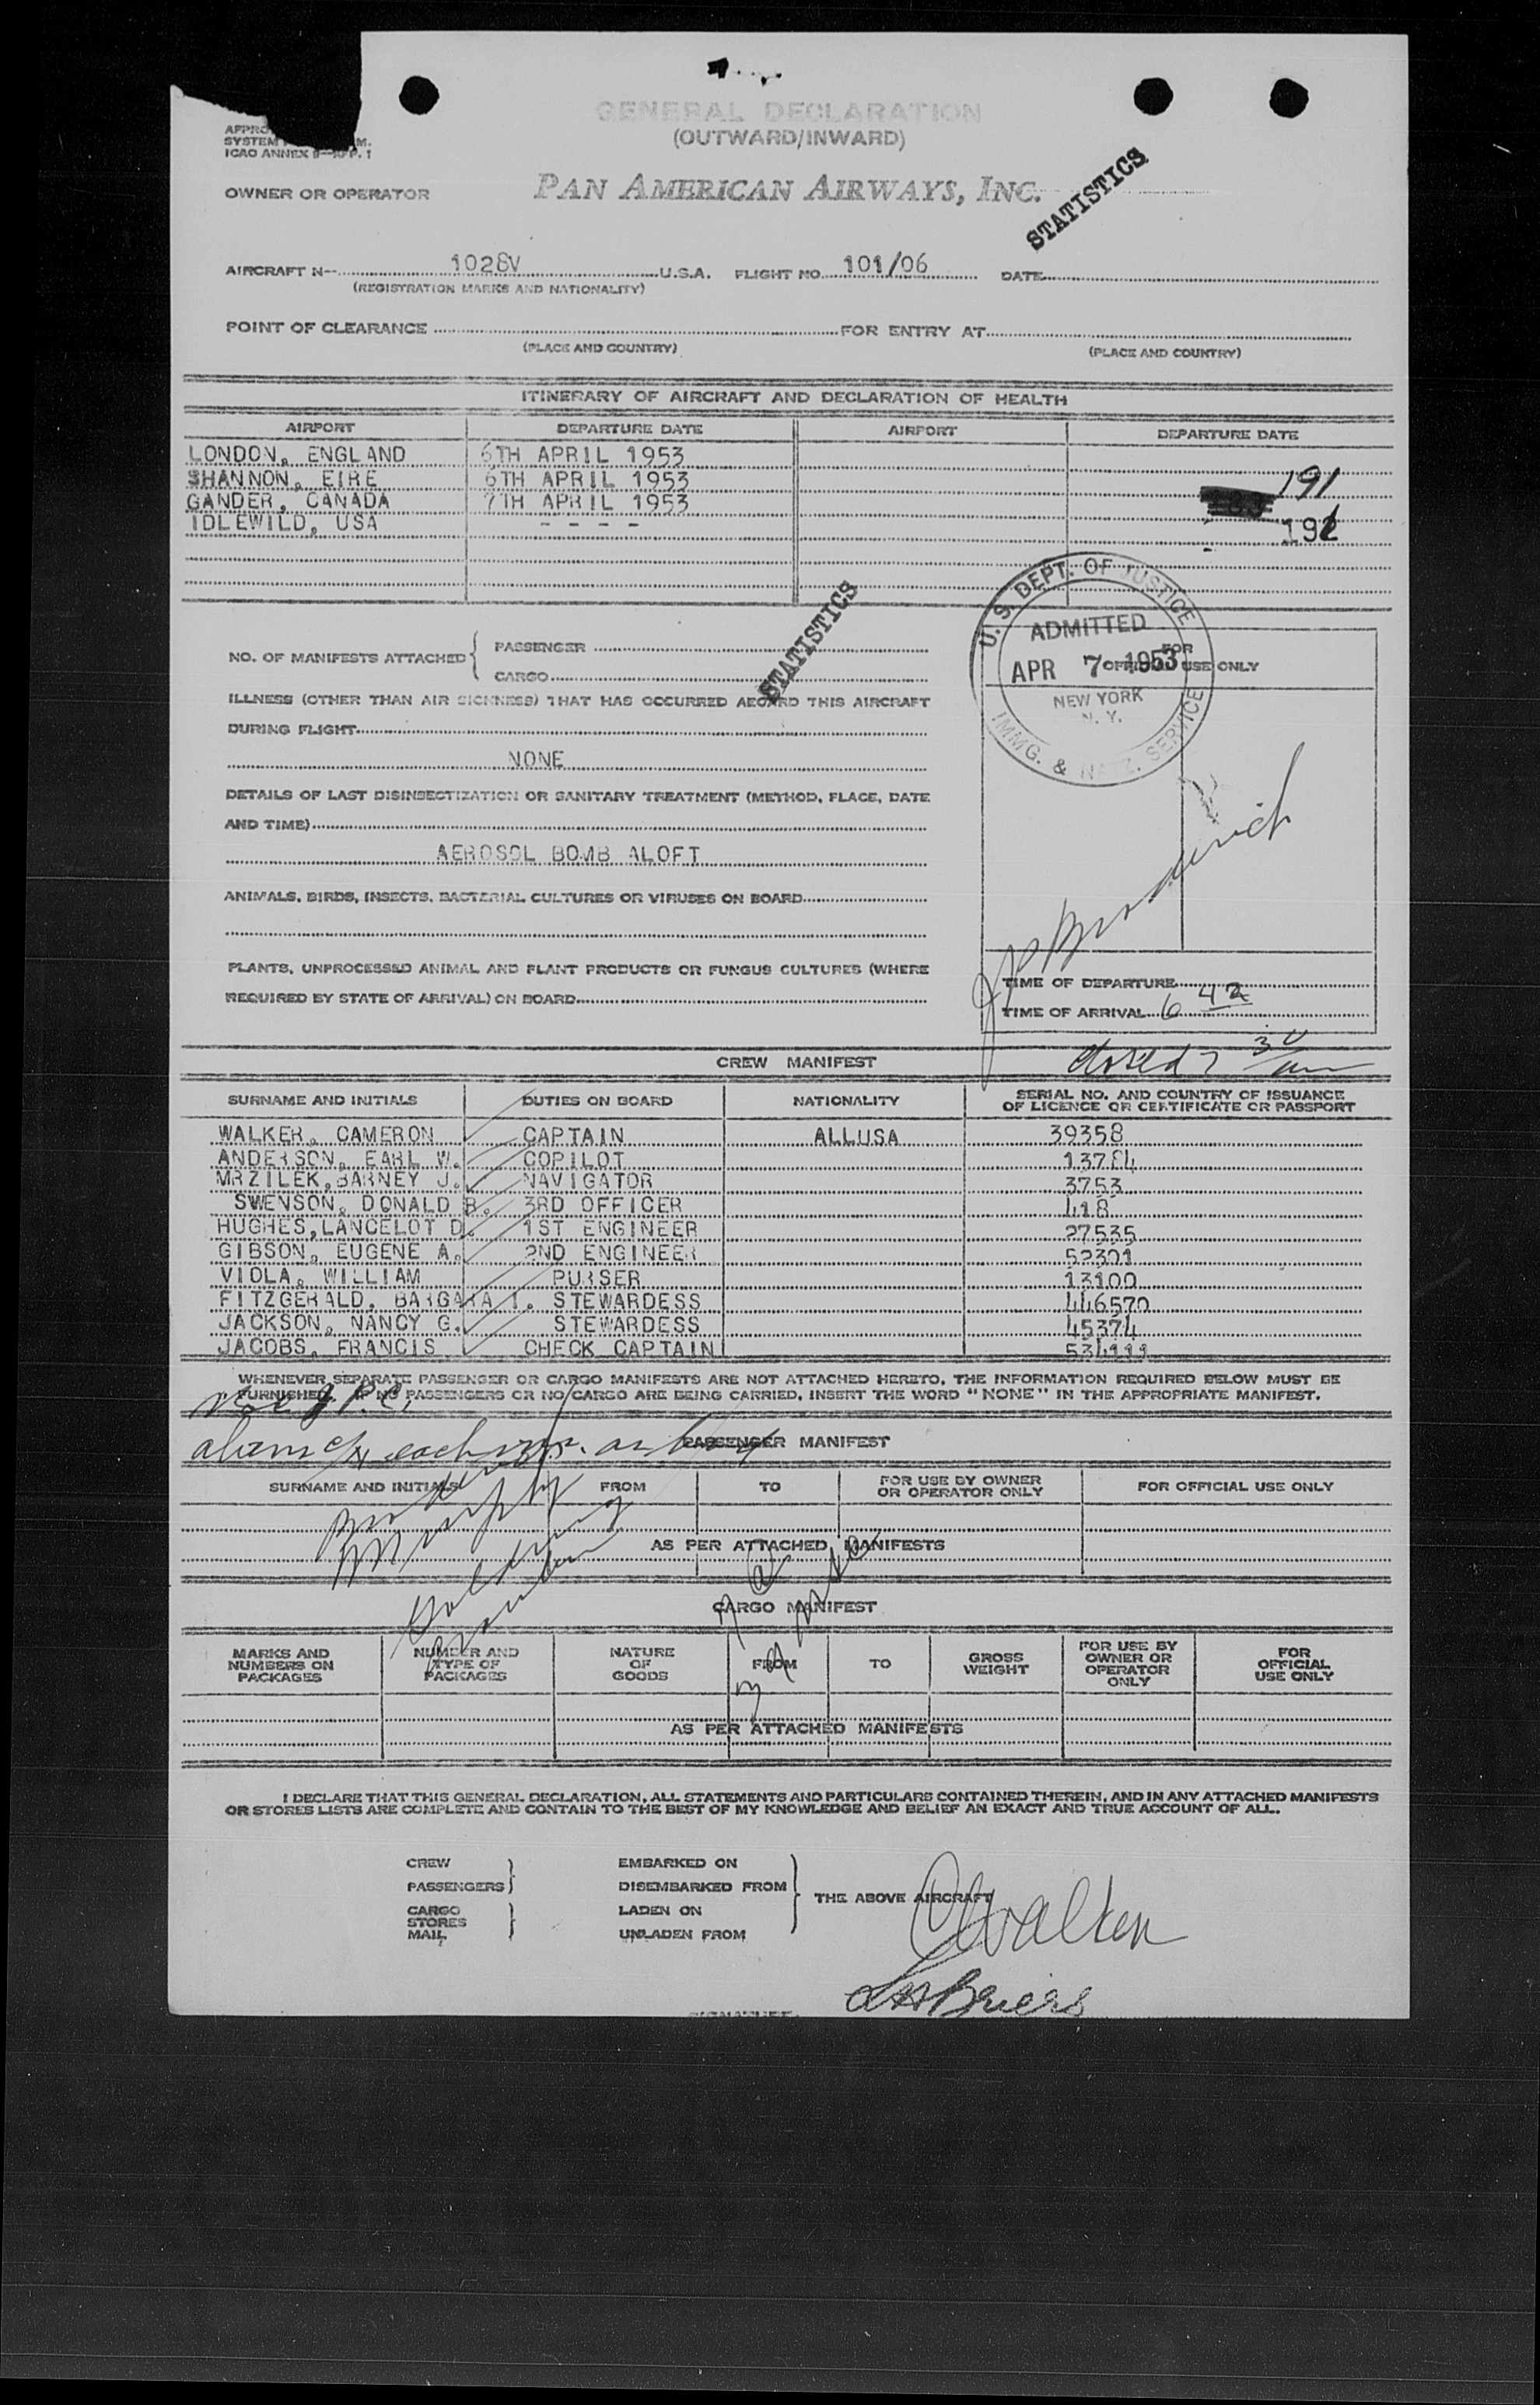 GENERAL DECLARATION
(OUTWARD/INWARD)
ICAO ANNEX 9
OWNER OR OPERATOR PAN AMERICAN AIRWAYS, INC.
STATISTICS
AIRCRAFT N- 1028V U.S.A. FLIGHT NO. 101/06 DATE
(REGISTRATION MARKS AND NATIONALITY)
POINT OF CLEARANCE FOR ENTRY AT
(PLACE AND COUNTRY) (PLACE AND COUNTRY)
ITINERARY OF AIRCRAFT AND DECLARATION OF HEALTH
AIRPORT DEPARTURE DATE AIRPORT DEPARTURE DATE
LONDON, ENGLAND 6TH APRIL 1953
SHANNON, EIRE 6TH APRIL 1953 191
GANDER, CANADA 7TH APRIL 1953
IDLEWILD, USA - - - - 191
U. S. DEPT. OF JUSTICE
ADMITTED
APR 7 1953
NEW YORK
N. Y.
IMMG. & NATZ. SERVICE
FOR
OFFICIAL USE ONLY
STATISTICS
NO. OF MANIFESTS ATTACHED PASSENGER
CARGO
ILLNESS (OTHER THAN AIR SICKNESS) THAT HAS OCCURRED ABOARD THIS AIRCRAFT
DURING FLIGHT
NONE
DETAILS OF LAST DISINSECTIZATION OR SANITARY TREATMENT (METHOD, PLACE, DATE
AND TIME)
AEROSOL BOMB ALOFT
ANIMALS, BIRDS, INSECTS, BACTERIAL CULTURES OR VIRUSES ON BOARD
PLANTS, UNPROCESSED ANIMAL AND PLANT PRODUCTS OR FUNGUS CULTURES (WHERE
REQUIRED BY STATE OF ARRIVAL) ON BOARD
TIME OF DEPARTURE
TIME OF ARRIVAL 6 42
closed 7 30 am
CREW MANIFEST
SURNAME AND INITIALS DUTIES ON BOARD NATIONALITY SERIAL NO. AND COUNTRY OF ISSUANCE
OF LICENCE OR CERTIFICATE OR PASSPORT
WALKER, CAMERON CAPTAIN ALLUSA 39358
ANDERSON, EARL W. COPILOT 13784
MRZILEK, BARNEY J. NAVIGATOR 3753
SWENSON, DONALD B. 3RD OFFICER 418
HUGHES, LANCELOT D. 1ST ENGINEER 27535
GIBSON, EUGENE A. 2ND ENGINEER 52301
VIOLA, WILLIAM PURSER 13100
FITZGERALD, BARGARA I. STEWARDESS 446570
JACKSON, NANCY G. STEWARDESS 45374
JACOBS, FRANCIS CHECK CAPTAIN 534111
WHENEVER SEPARATE PASSENGER OR CARGO MANIFESTS ARE NOT ATTACHED HERETO, THE INFORMATION REQUIRED BELOW MUST BE
FURNISHED. IF NO PASSENGERS OR NO CARGO ARE BEING CARRIED, INSERT THE WORD "NONE" IN THE APPROPRIATE MANIFEST.
PASSENGER MANIFEST
SURNAME AND INITIALS FROM TO FOR USE BY OWNER
OR OPERATOR ONLY FOR OFFICIAL USE ONLY
Murphy
AS PER ATTACHED MANIFESTS
CARGO MANIFEST
MARKS AND
NUMBERS ON
PACKAGES
NUMBER AND
TYPE OF
PACKAGES
NATURE
OF
GOODS
FROM
TO
GROSS
WEIGHT
FOR USE BY
OWNER OR
OPERATOR
ONLY
FOR
OFFICIAL
USE ONLY
AS PER ATTACHED MANIFESTS
I DECLARE THAT THIS GENERAL DECLARATION, ALL STATEMENTS AND PARTICULARS CONTAINED THEREIN, AND IN ANY ATTACHED MANIFESTS
OR STORES LISTS ARE COMPLETE AND CONTAIN TO THE BEST OF MY KNOWLEDGE AND BELIEF AN EXACT AND TRUE ACCOUNT OF ALL.
CREW EMBARKED ON
PASSENGERS DISEMBARKED FROM
THE ABOVE AIRCRAFT
CARGO LADEN ON
STORES
MAIL UNLADEN FROM
CWalker